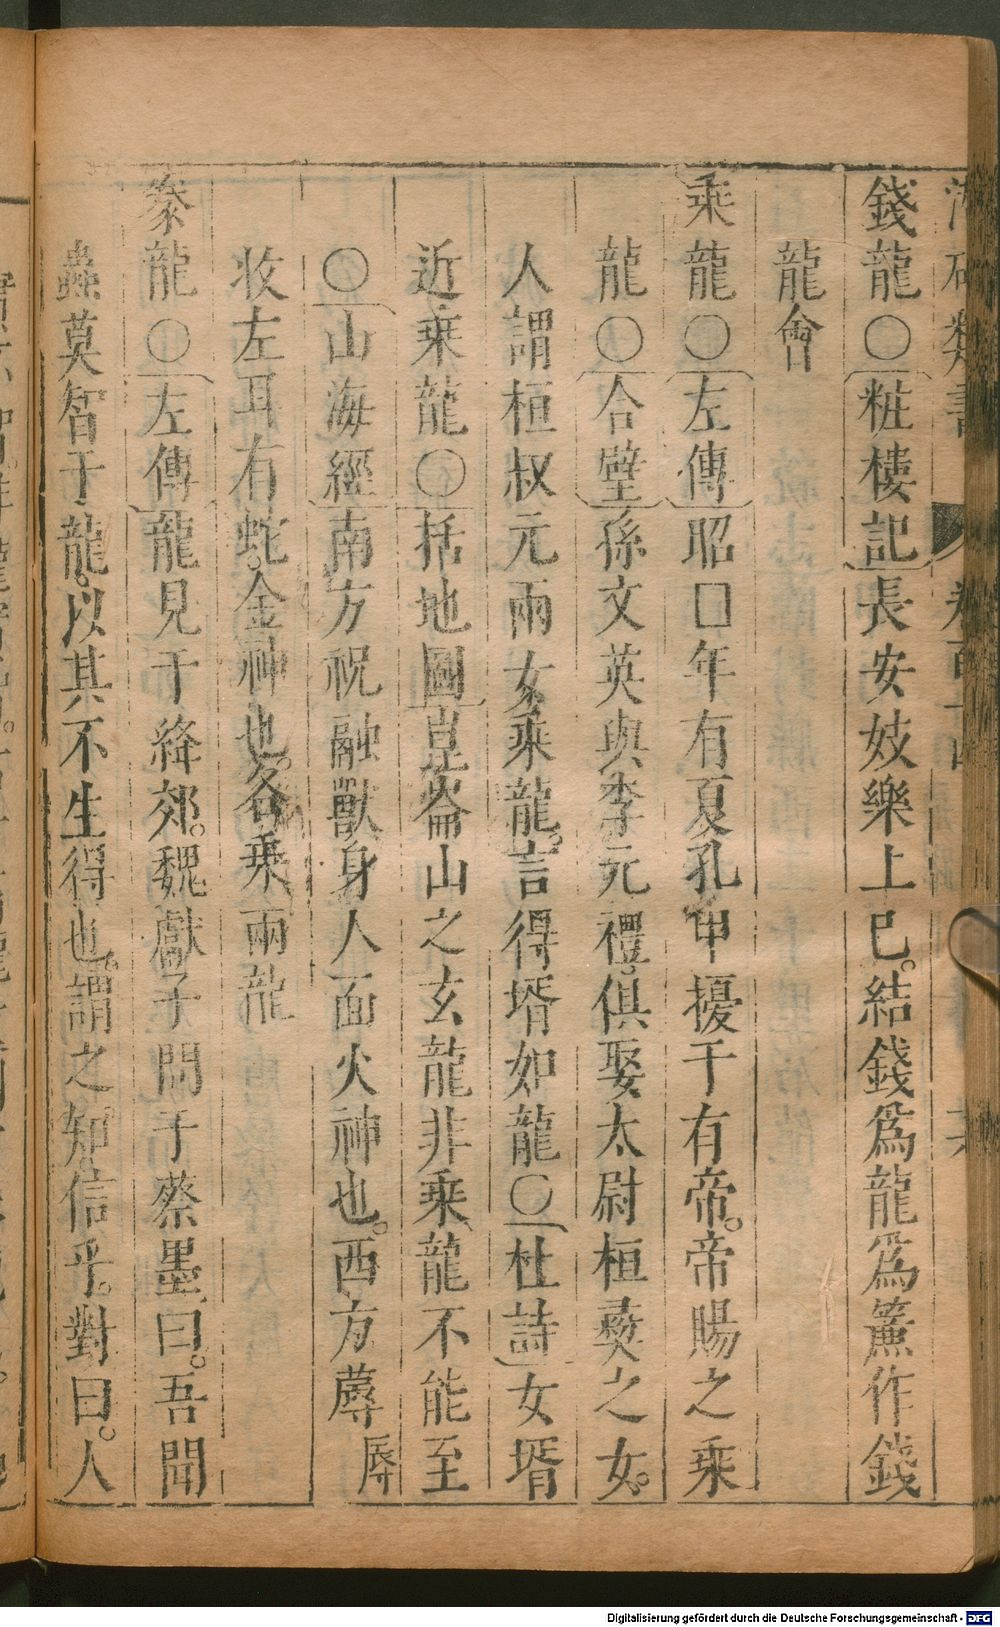 錢龍○粧樓記長安妓樂上巳。結錢爲龍爲簾作錢
龍會
乘龍○左傳昭□年有夏孔甲擾于有帝。帝賜之乘
龍○合璧孫文英與李元禮。俱娶太尉桓焉之女。時
人謂桓叔元兩女乘龍。言得壻如龍○杜詩女壻
近乘龍○括地圖崑崙山之玄龍非乘龍不能至
○山海經南方祝融獸身人面火神也。西方蓐
收左耳有蛇。金神也。各乘兩龍
豢龍○左傳龍見于絳郊。魏獻子問于蔡墨曰。吾聞
蟲莫智于龍。以其不生得也。謂之知。信乎。對曰。人
Digitalisierung gefördert durch die Deutsche Forschungsgemeinschaft - DFG